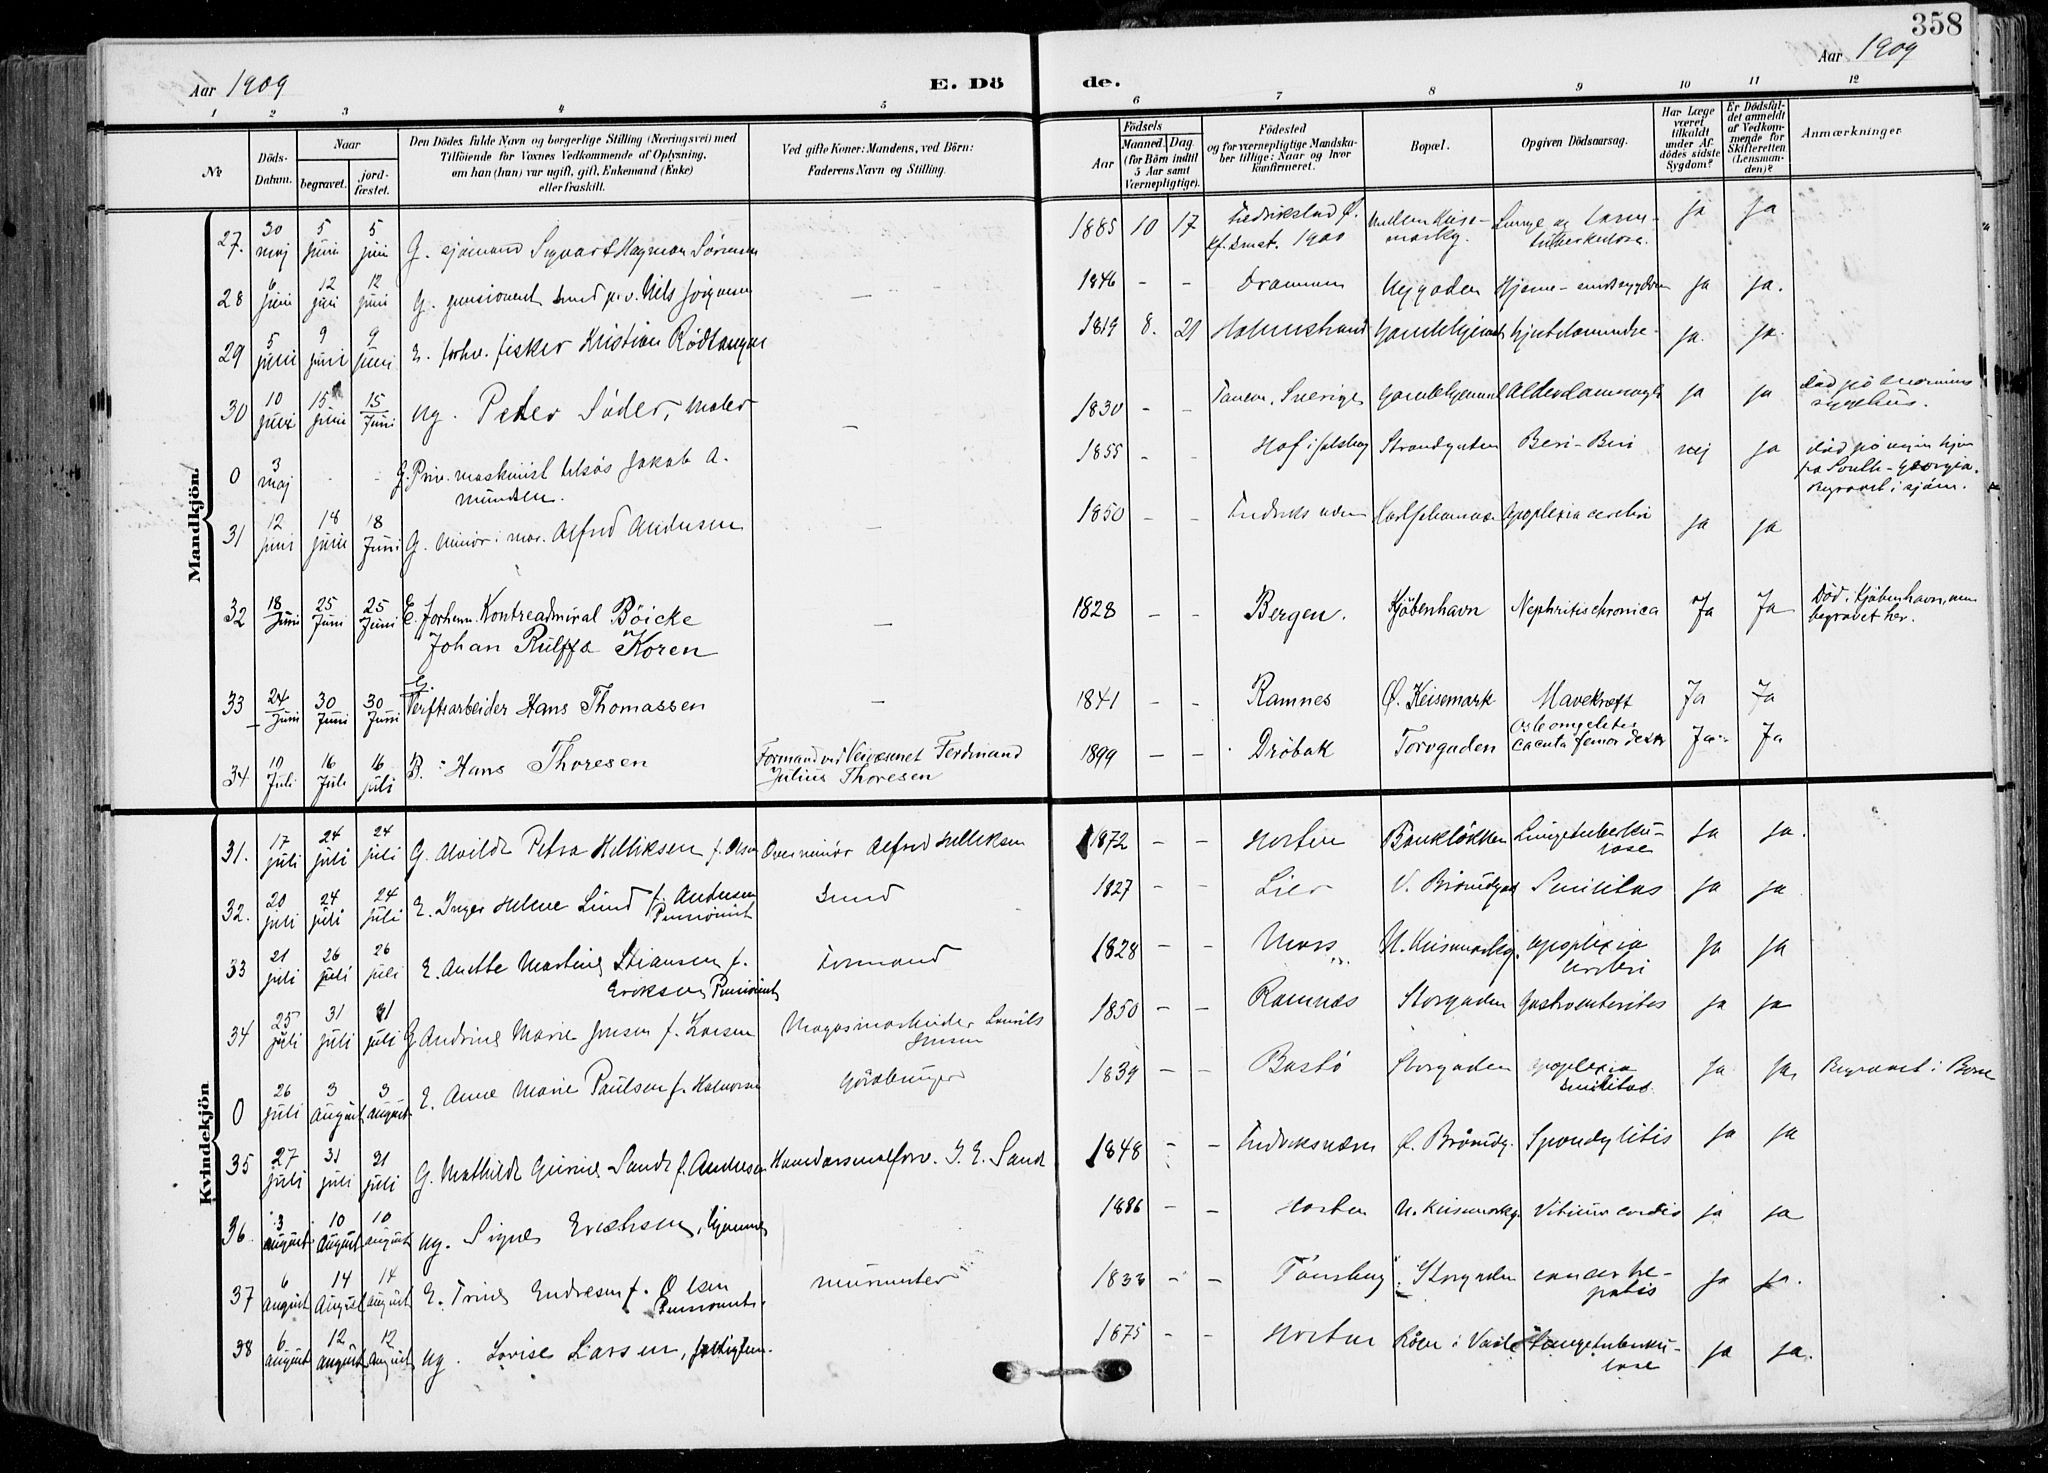 358
Aar 1909
E. Dö
de.
Aar 1909
1 2 3 4 5 6 7 8 9 10 11 12
№
Döds-
Datum.
Naar
begravet.
jord-
fæstet.
Den Dödes fulde Navn og borgerlige Stilling (Næringsvei) med
Tilföiende for Voxnes Vedkommende af Oplysning,
om han (hun) var ugift, gift, Enkemand (Enke)
eller fraskilt.
Ved gifte Koner: Mandens, ved Börn:
Faderens Navn og Stilling.
Födsels
Aar
Maaned.
Dag
(for Börn indtil
5 Aar samt
Værnepligtige).
Födested
og for værnepligtige Mandska-
ber tillige: Naar og hvor
konfirmeret.
Bopæl.
Opgiven Dödsaarsag.
Har Læge
været
tilkaldt
under Af-
dödes sidste
Sygdom?
Er Dödsfal-
det anmeldt
af Vedkom-
mende for
Skifteretten
(Lensman-
den)?
Anmærkninger
Mandkjön
27. 30 maj 5 juni 5 juni G. sjömand Sigvart Hagman Sörensen 1885 10 17 Fredrikstad Ø. 1900 Lunge og ja ja
28 6 juni 12 juni 12 juni G. pensioneret Nils Jörgensen — 1846 - - Drammen Nygaden ja ja.
29 5 juni 9 juni 9 juni E. forhv. fisker Kristian Rödtangen 1819 8. 21 Holmestrand Gamlehjemmet ja. ja.
30 10 juni 15 juni 15 Juni ug. Peder Söder, maler — 1830 - - Sverige Gamlehjemmet Alderdomssvaghed ja ja död på Marinens
sygehus.
0 3 maj - - G. Priv. maskinist Jakob A.
mundsen. 1855 - - Hof i Strandgaten Beri-Beri nej ja död på
South-Georgia.
Begravet i sjöen.
31 12 juni 18 juni 18 Juni G. Minör i mar. Alfred Andersen — 1850 - - Apoplexia cerebri ja ja
32 18 Juni 25 Juni 25 Juni E. Forhenv. Kontreadmiral Böicke
Johan Rulffs Koren — 1828 - - Bergen. Kjöbenhavn Nephritis chronica Ja Ja Död i Kjöbenhavn, men
begravet her.
33 24 Juni 30 Juni 30 Juni G. Verftsarbeider Hans Thomassen — 1841 - - Ramnes Ø. Keisemark Mavekræft Ja Ja
34 10 Juli 16 Juli 16 juli B. Hans Thoresen Formand ved Veivæsenet Ferdinand
Julius Thoresen 1899 - - Dröbak Torvgaden Osteomyelitis
acuta femor dextr Ja Ja
Kvindekjön
31. 17 juli 24 juli 24 juli G. Alvilde Petra Helliksen f. Olsen Overminör Alfred Helliksen 1872 - - Horten Bankløkken Lungetuberku-
lose ja ja.
32. 20 juli 24 juli 24 juli E. Inger Helene Lund f. Andersen
Pensionist Smed 1827 - - Lier V. Senilitas ja ja.
33 21 juli 26 juli 26 juli E. Anette Martine Stiansen f.
Eriksen Pensionist Formand 1828 - - Moss N. Keisemarkg. apoplexia
cerebri ja ja
34 25 juli 31 juli 31 juli G. Andrine Marie Jensen f. Larsen Magasinarbeider Laurits
Jensen 1850 - - Ramnæs Storgaden Gastroenteritis ja ja
0 26 juli 3 august 3 august. E. Anne Marie Paulsen f. Halvorsen Gårdbruger 1839 Bastö Storgaden apoplexia
senilitas. ja ja. Begravet i Borre
35 27 juli 31 juli 31 juli G. Mathilde Gurine Sande f. Andersen J. E. Sande 1848 - - Fredriksværn Ø. Spondylitis ja ja
36 3 august 10 august 10 august ug. Signe Erichsen, hjemme 1886 - - Horten N. Keisemarkg. Vitium cordis ja ja
37 6 august 14 August 14 august E. Trine Endresen f. Olsen
Pensionist. murmester 1833 - - Tönsberg Storgaden cancer he-
patis ja ja.
38 6 august 12 august 12 august ug. Lovise Larsen, fattiglem. 1875 - - Horten Lungetuberku-
lose ja ja.